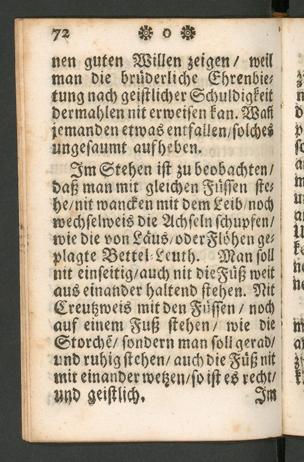 72 ❋ o ❋
nen guten Willen zeigen / weil
man die brüderliche Ehrenbie-
tung nach geistlicher Schuldigkeit
dermahlen nit erweisen kan. Wañ
jemanden etwas entfallen / solches
ungesaumt aufheben.
Im Stehen ist zu beobachten /
daß man mit gleichen Füssen ste-
he / nit wancken mit dem Leib / noch
wechselweis die Achseln schupfen /
wie die von Läus / oder Flöhen ge-
plagte Bettel-Leuth. Man soll
nit einseitig / auch nit die Füß weit
aus einander haltend stehen. Nit
Creutzweis mit den Füssen / noch
auf einem Fuß stehen / wie die
Storchẽ / sondern man soll gerad /
und ruhig stehen / auch die Füß nit
mit einander wetzen / so ist es recht /
und geistlich. Im